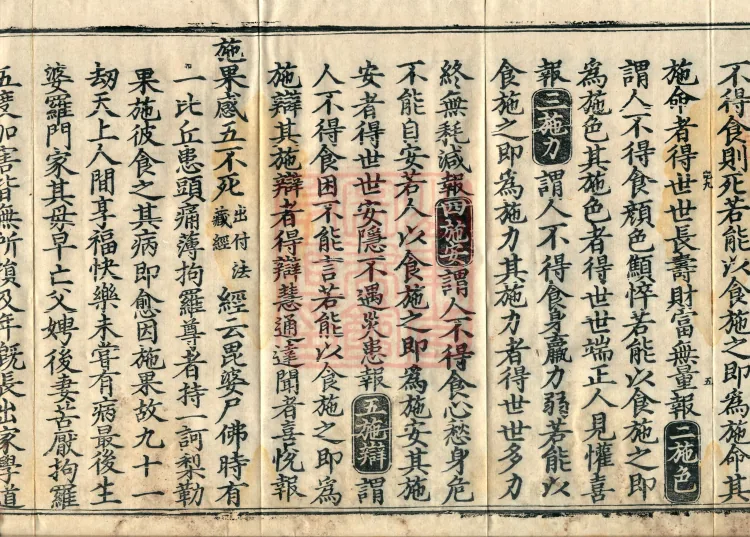 不得食則死若能以食施之即爲施命其
施命者得世世長壽財富無量報二施色
謂人不得食顔色顦悴若能以食施之即
爲施色其施色者得世世端正人見懽喜
報三施力謂人不得食身羸力弱若能以
食施之即爲施力其施力者得世世多力
終無耗減報四施安謂人不得食心愁身危
不能自安若人以食施之即爲施安其施
安者得世世安隱不遇災患報五施辯謂
人不得食困不能言若能以食施之即爲
施辯其施辯者得辯慧通達聞者喜悅報
施果感五不死出付法藏經經云毘婆尸佛時有
一比丘患頭痛薄拘羅尊者持一訶梨勒
果施彼食之其病即愈因施果故九十一
劫天上人間享福快樂未嘗有病最後生
婆羅門家其母早亡父娉後妻苦厭拘羅
五度加害皆無所損及年既長出家學道